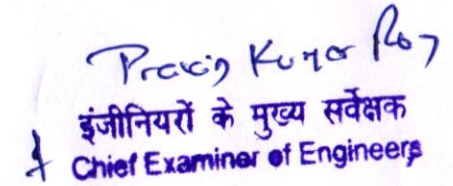 Pravin Kumar Roy
इंजीनियरों के मुख्य सर्वेक्षक
Chief Examiner of Engineers